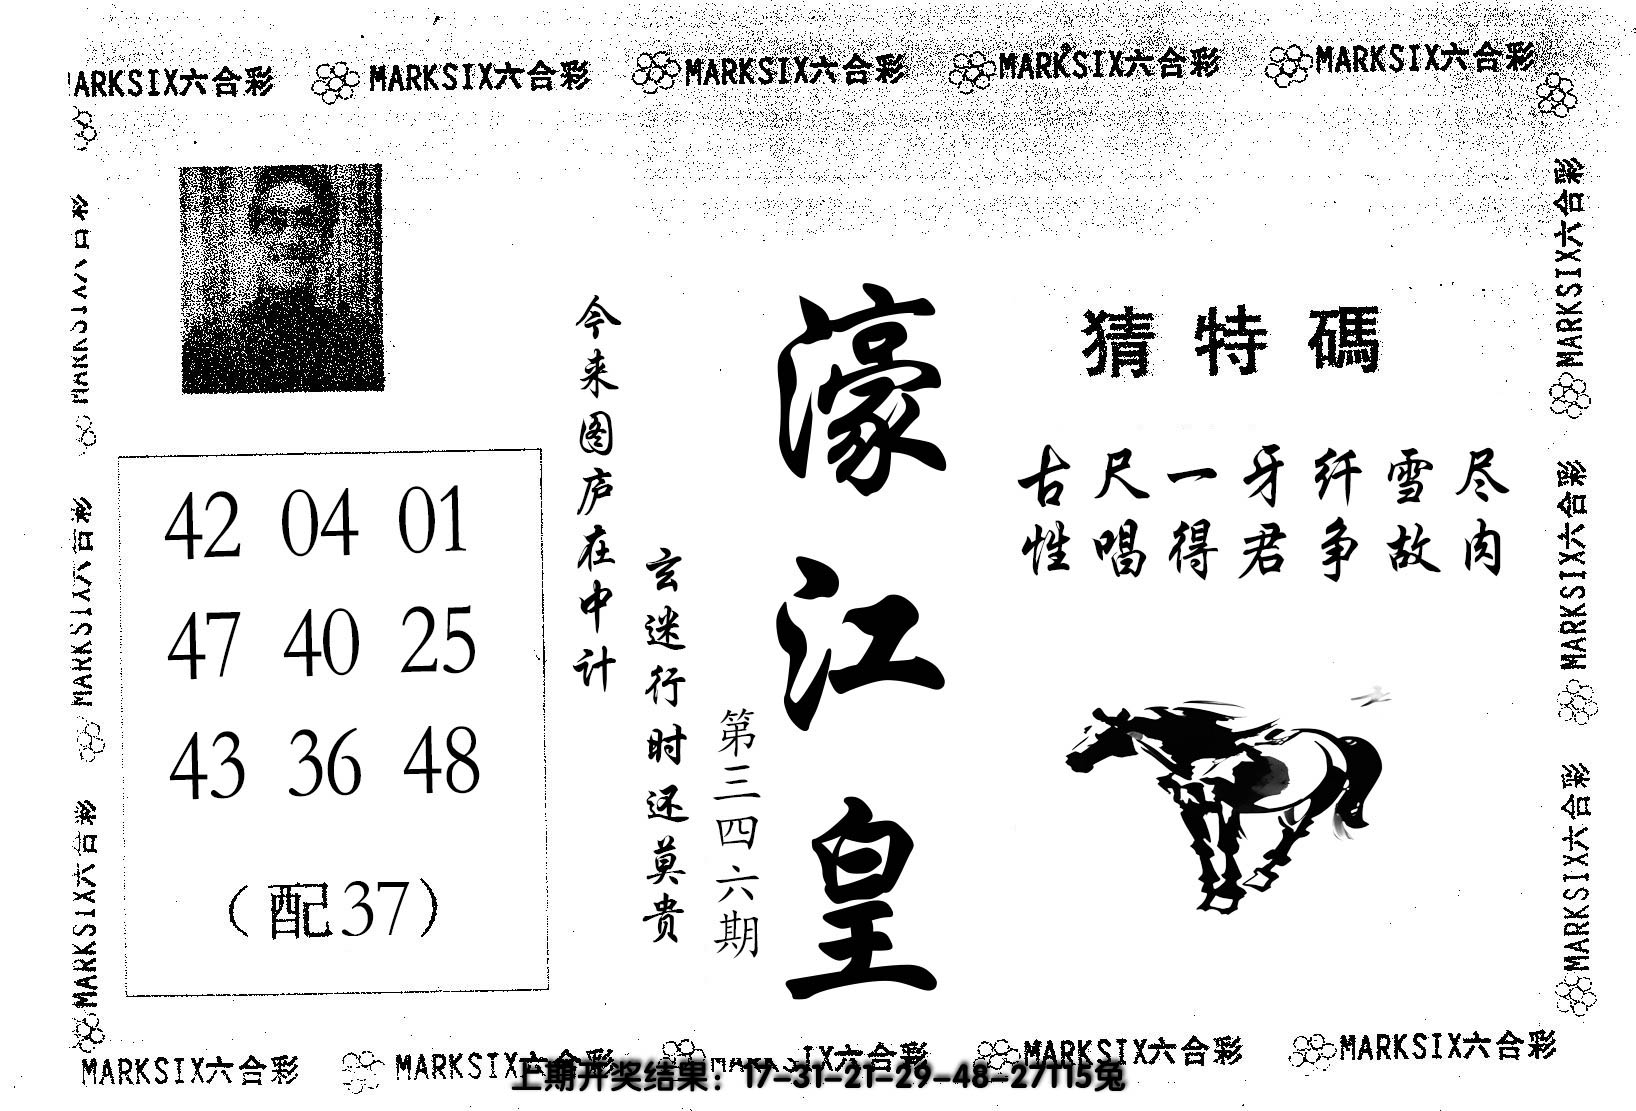 MARKSIX六合彩 MARKSIX六合彩 MARKSIX六合彩 MARKSIX六合彩 MARKSIX六合彩
猜特碼
古尺一牙纤雪尽
性唱得君争故肉
濠江皇
第三四六期
玄迷行时还莫贵
今来图庐在中计
42 04 01
47 40 25
43 36 48
(配37)
MARKSIX六合彩
MARKSIX六合彩
MARKSIX六合彩
MARKSIX六合彩
MARKSIX六合彩
MARKSIX六合彩
MARKSIX六合彩 MARKSIX六合彩 MARKSIX六合彩 MARKSIX六合彩 MARKSIX六合彩
上期开奖结果：17-31-21-29-48-27T15兔